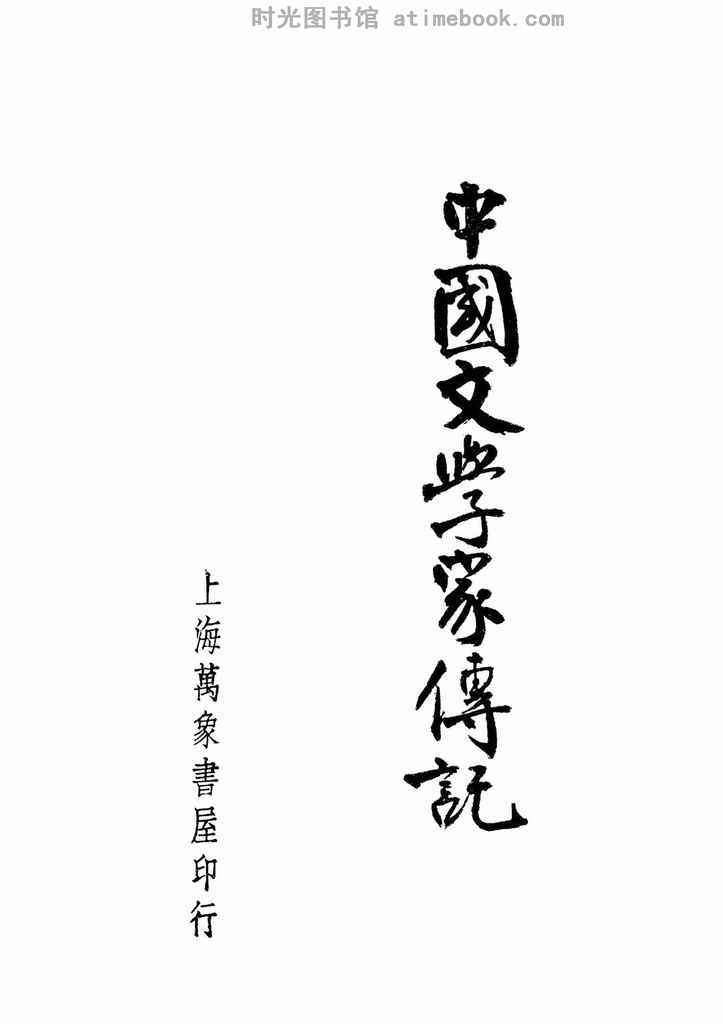 时光图书馆 atimebook.com
中國文學家傳記
上海萬象書屋印行